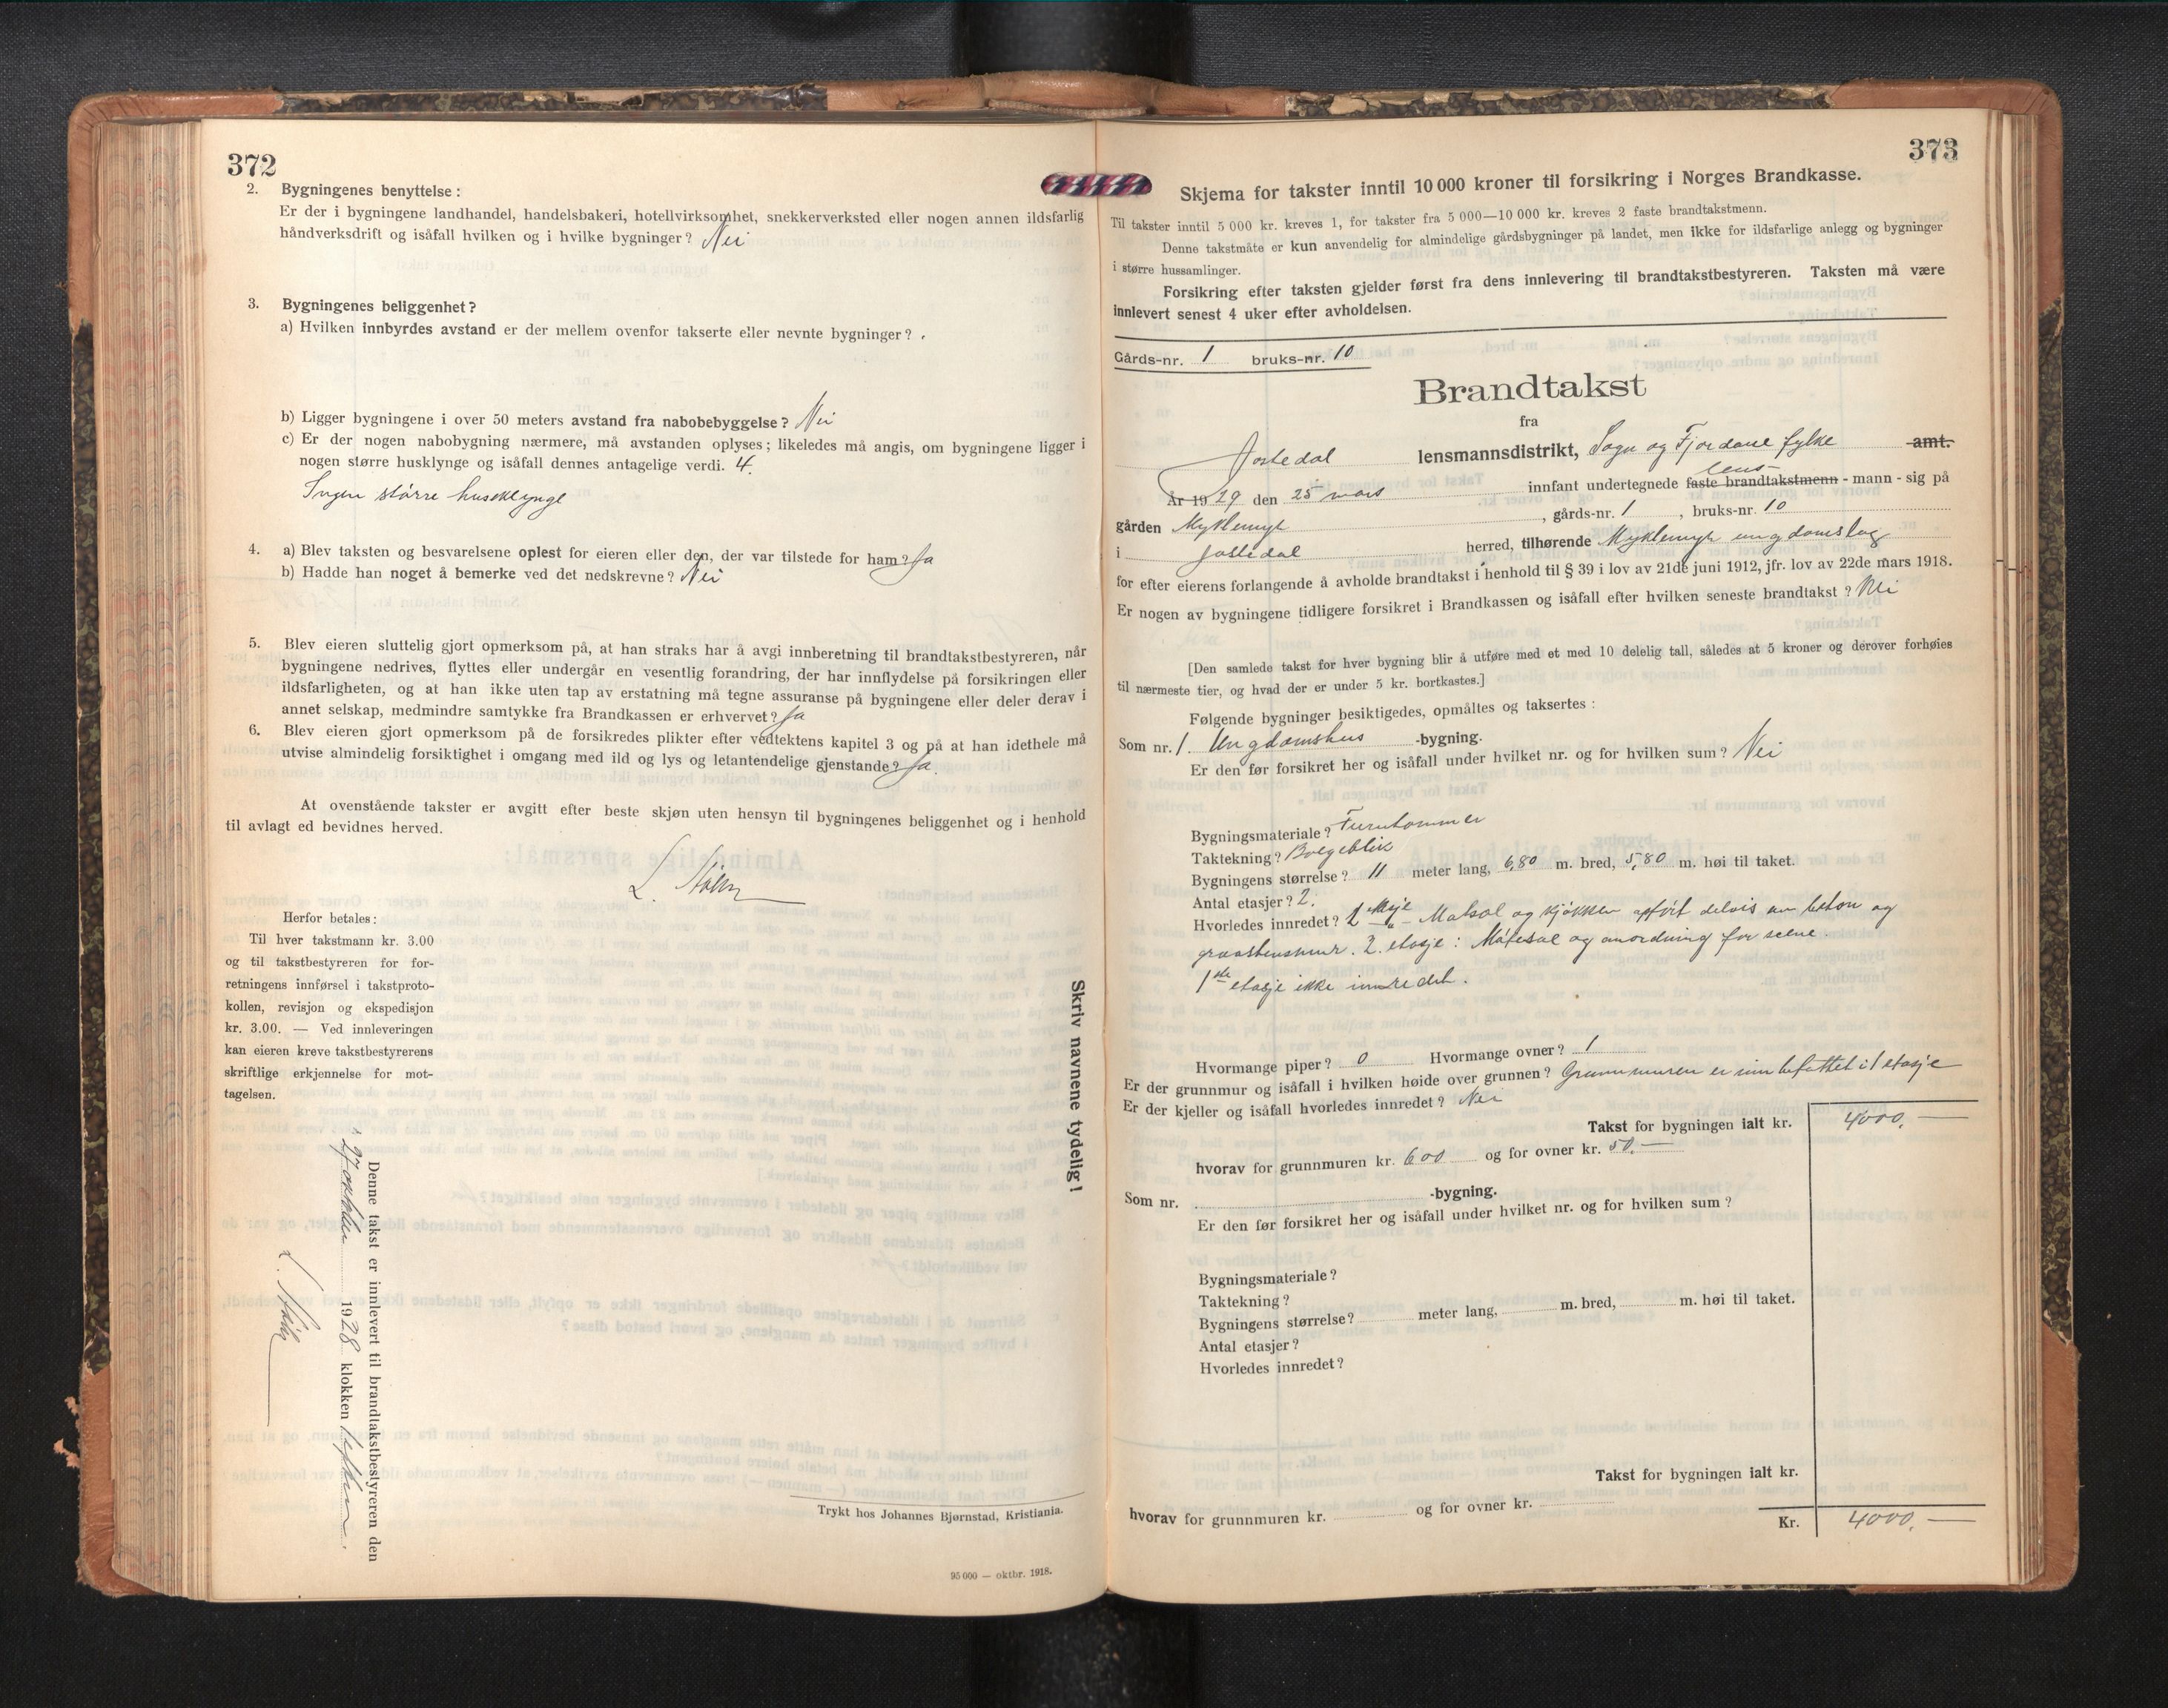 372
2. Bygningenes benyttelse :
Er der i bygningene landhandel, handelsbakeri, hotellvirksomhet, snekkerverksted eller nogen annen ildsfarlig
håndverksdrift og isåfall hvilken og i hvilke bygninger? Nei
3. Bygningenes beliggenhet?
a) Hvilken innbyrdes avstand er der mellem ovenfor takserte eller nevnte bygninger?
b) Ligger bygningene i over 50 meters avstand fra nabobebyggelse? Nei
c) Er der nogen nabobygning nærmere, må avstanden oplyses; likeledes må angis, om bygningene ligger i
nogen større husklynge og isåfall dennes antagelige verdi. 4.
Ingen större huseklynge
4. a) Blev taksten og besvarelsene oplest for eieren eller den, der var tilstede for ham? Ja
b) Hadde han noget å bemerke ved det nedskrevne? Nei
5. Blev eieren sluttelig gjort opmerksom på, at han straks har å avgi innberetning til brandtakstbestyreren, når
bygningene nedrives, flyttes eller undergår en vesentlig forandring, der har innflydelse på forsikringen eller
ildsfarligheten, og at han ikke uten tap av erstatning må tegne assuranse på bygningene eller deler derav i
annet selskap, medmindre samtykke fra Brandkassen er erhvervet? Ja
6. Blev eieren gjort opmerksom på de forsikredes plikter efter vedtektens kapitel 3 og på at han idethele må
utvise almindelig forsiktighet i omgang med ild og lys og letantendelige gjenstande? Ja.
At ovenstående takster er avgitt efter beste skjøn uten hensyn til bygningenes beliggenhet og i henhold
til avlagt ed bevidnes herved.
L.
Herfor betales:
Til hver takstmann kr. 3.00
og til takstbestyreren for for-
retningens innførsel i takstproto-
kollen, revisjon og ekspedisjon
kr. 3.00. — Ved innleveringen
kan eieren kreve takstbestyrerens
skriftlige erkjennelse for mot-
tagelsen.
Skriv navnene tydelig!
Denne takst er innlevert til brandtakstbestyreren den
27 1928 klokken
L.
Trykt hos Johannes Bjørnstad, Kristiania.
95 000 — oktbr. 1918.
373
Skjema for takster inntil 10 000 kroner til forsikring i Norges Brandkasse.
Til takster inntil 5 000 kr. kreves 1, for takster fra 5 000—10 000 kr. kreves 2 faste brandtakstmenn.
Denne takstmåte er kun anvendelig for almindelige gårdsbygninger på landet, men ikke for ildsfarlige anlegg og bygninger
i større hussamlinger.
Forsikring efter taksten gjelder først fra dens innlevering til brandtakstbestyreren. Taksten må være
innlevert senest 4 uker efter avholdelsen.
Gårds-nr. 1 bruks-nr. 10
Brandtakst
fra
Jostedal lensmannsdistrikt, Sogn og Fjordane fylke amt.
lens-
År 19 29 den 25 mars innfant undertegnede faste brandtakstmenn - mann - sig på
gården Myklemyr , gårds-nr. 1 , bruks-nr. 10
i Jostedal herred, tilhørende Myklemyr ungdomslag
for efter eierens forlangende å avholde brandtakst i henhold til § 39 i lov av 21de juni 1912, jfr. lov av 22de mars 1918.
Er nogen av bygningene tidligere forsikret i Brandkassen og isåfall efter hvilken seneste brandtakst? Nei
[Den samlede takst for hver bygning blir å utføre med et med 10 delelig tall, således at 5 kroner og derover forhøies
til nærmeste tier, og hvad der er under 5 kr. bortkastes.]
Følgende bygninger besiktigedes, opmåltes og taksertes :
Som nr. 1. Ungdomshus -bygning.
Er den før forsikret her og isåfall under hvilket nr. og for hvilken sum? Nei
Bygningsmateriale? Furutømmer
Taktekning? Bølgeblik
Bygningens størrelse? 11 meter lang, 6,80 m. bred, 5,80 m. høi til taket.
Antal etasjer? 2.
Hvorledes innredet? 1 etasje Matsal og kjökken opfört delvis av beton og
graastensmur. 2. etasje : Mötesal og anordning for scene.
1ste etasje ikke innredet.
Hvormange piper? 0 Hvormange ovner? 1
Er der grunnmur og isåfall i hvilken høide over grunnen? Grunnmuren er innbefattet i 1 etasje
Er der kjeller og isåfall hvorledes innredet? Nei
Takst for bygningen ialt kr. 4000,—
hvorav for grunnmuren kr. 600 og for ovner kr. 50.—
Som nr. -bygning.
Er den før forsikret her og isåfall under hvilket nr. og for hvilken sum?
Bygningsmateriale?
Taktekning?
Bygningens størrelse? meter lang, m. bred, m. høi til taket.
Antal etasjer?
Hvorledes innredet?
Takst for bygningen ialt kr.
hvorav for grunnmuren kr. og for ovner kr.
Kr. 4000,—